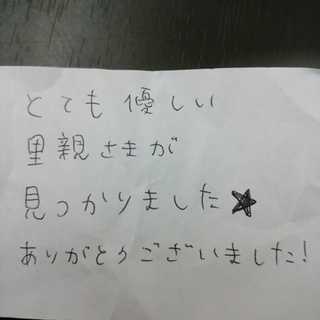 とても優しい
里親さまが
見つかりました★
ありがとうございました!